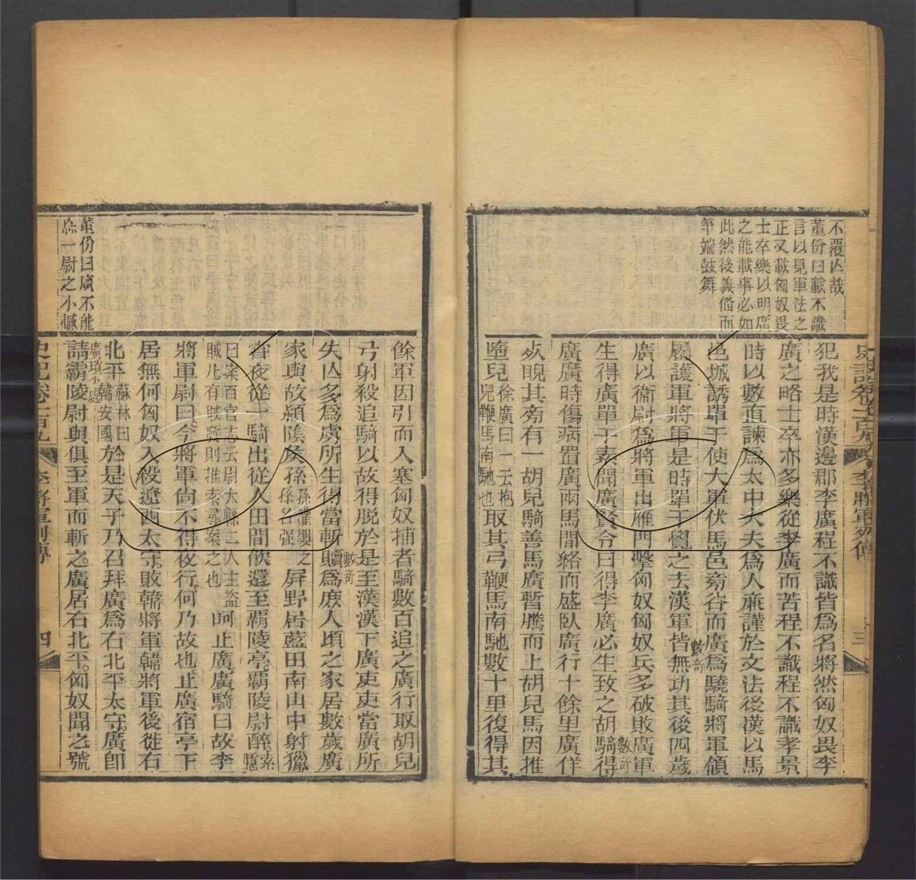 不遷亡哉
董份曰載不識
言以見軍法之
正又載匈奴畏
士卒樂以明廣
之能載事必如
此然後義備而
筆端鼓舞
史記卷一百九
李將軍列傳
三
犯我是時漢邊郡李廣程不識皆爲名將然匈奴畏李
廣之略士卒亦多樂從李廣而苦程不識程不識孝景
時以數直諫爲太中大夫爲人廉謹於文法後漢以馬
邑城誘單于使大軍伏馬邑旁谷而廣爲驍騎將軍領
屬護軍將軍是時單于覺之去漢軍皆無功其後四歲
數奇
廣以衛尉爲將軍出雁門擊匈奴匈奴兵多破敗廣軍
生得廣單于素聞廣賢令曰得李廣必生致之胡騎得
數奇
廣廣時傷病置廣兩馬間絡而盛臥廣行十餘里廣佯
死睨其旁有一胡兒騎善馬廣暫騰而上胡兒馬因推
墮兒徐廣曰一云抱兒鞭馬南馳也取其弓鞭馬南馳數十里復得其
餘軍因引而入塞匈奴捕者騎數百追之廣行取胡兒
弓射殺追騎以故得脫於是至漢漢下廣吏吏當廣所
失亡多爲虜所生得當斬贖爲庶人頃之家居數歲廣
數奇
家與故潁陰侯孫孫灌嬰之孫名強屏野居藍田南山中射獵
嘗夜從一騎出從人田間飲還至霸陵亭霸陵尉醉索隱
曰案百官志云尉大縣二人主盜賊凡有賊發則推索尋案之也呵止廣廣騎曰故李
將軍尉曰今將軍尚不得夜行何乃故也止廣宿亭下
居無何匈奴入殺遼西太守敗韓將軍韓將軍後徙右
北平蘇林曰韓安國於是天子乃召拜廣爲右北平太守廣卽
請霸陵尉與俱至軍而斬之廣居右北平匈奴聞之號
董份曰廣不能
忘一尉之小憾
史記卷一百九
李將軍列傳
四